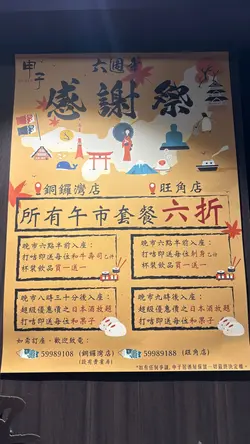 甲子
六週年
感謝祭
銅鑼灣店
旺角店
所有午市套餐六折
晚市六點半前入座：
打咭即送每位和牛壽司乙件
杯裝飲品買一送一
晚市六點半前入座：
打咭即送每位刺身乙份
杯裝飲品買一送一
晚市八時三十分後入座：
超級優惠價之日本酒放題
打咭即送每位和果子
晚市九時後入座：
超級優惠價之日本酒放題
打咭即送每位和果子
如需訂座，歡迎致電：
59989108 (銅鑼灣店)
59989188 (旺角店)